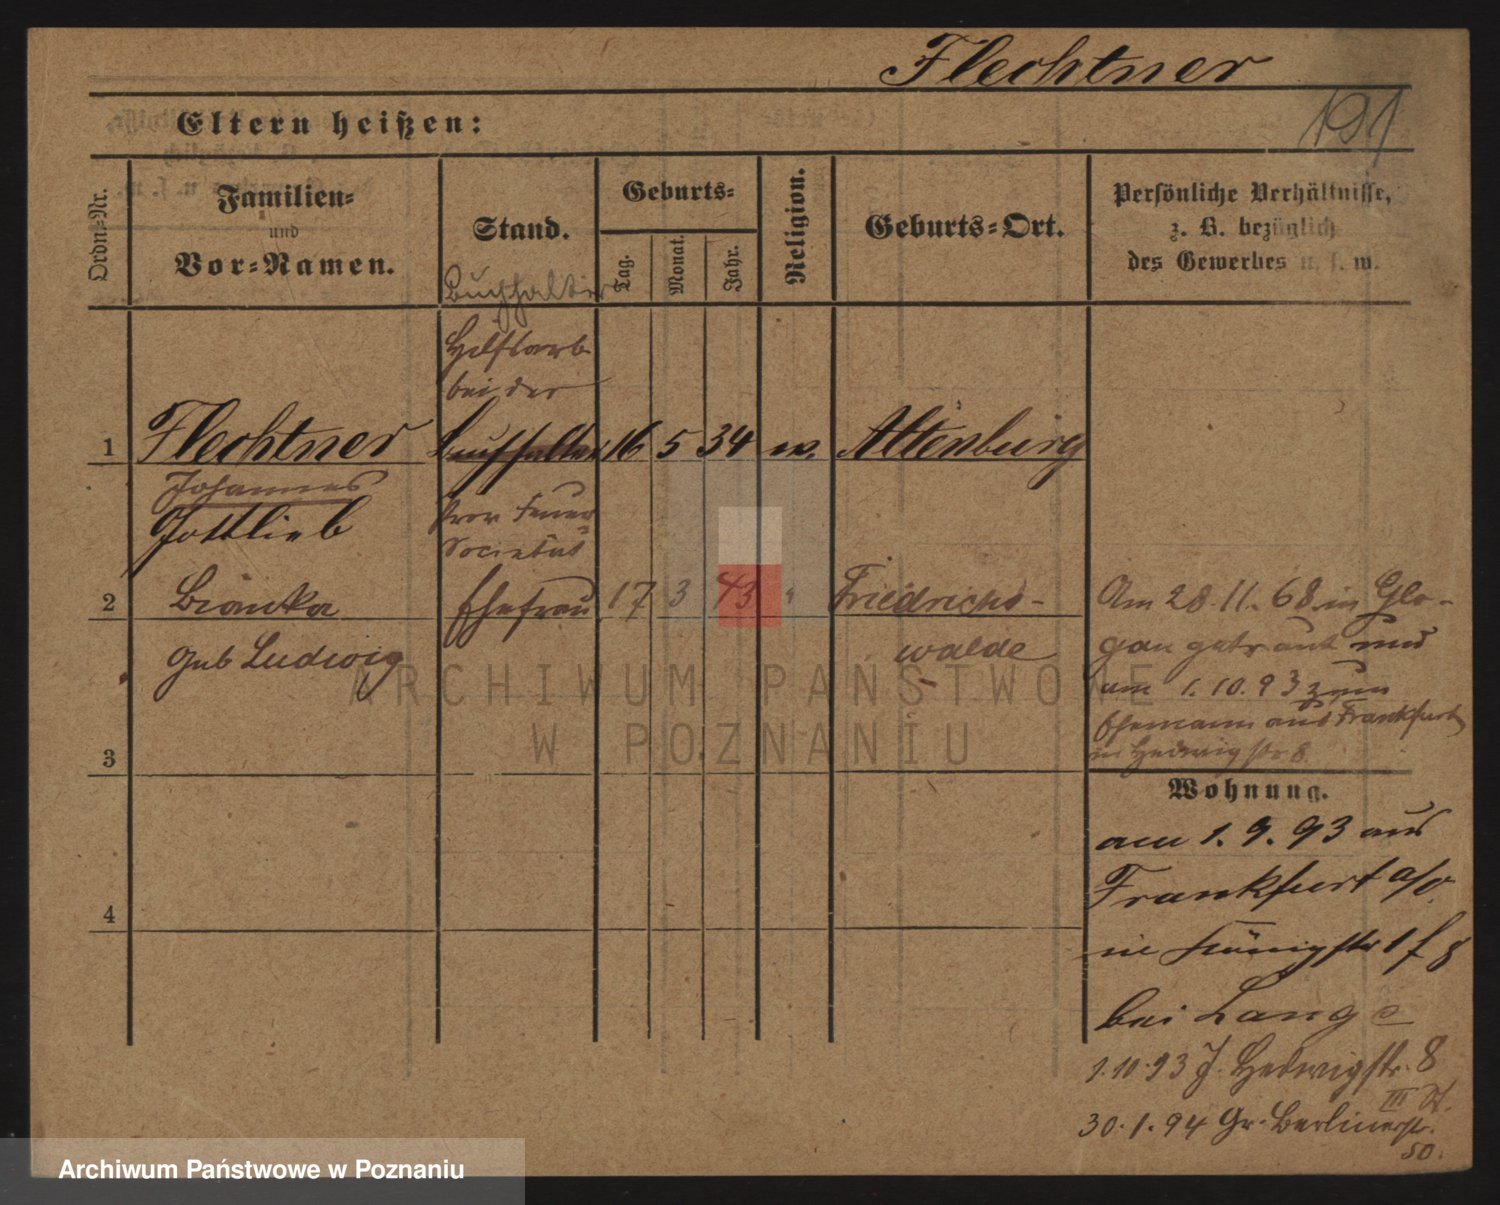 Flechtner
191
Eltern heißen:
Ordn=Nr.
Familien=
und
Vor=Namen.
Stand.
Geburts=
Tag.
Monat.
Jahr.
Religion.
Geburts=Ort.
Persönliche Verhältnisse,
z. B. bezüglich
des Gewerbes u. s. w.
Buchhalter
Hilfsarb
bei der
1 Flechtner Buchhalter 16 5 34 ev. Altenburg
Johannes
Gottlieb
Prov Feuer
Societät
2 Bianka Ehefrau 17 3 43 " Friedrichs-
geb Ludwig
walde
Am 28.11.68 in Glo-
gau getraut und
am 1.10.93 zum
Ehemann aus Frankfurt
in Hedwigstr 8.
3
Wohnung.
am 1.9.93 aus
Frankfurt a/O.
in Königstr 1 f 8
bei Lange
1.10.93 J. Hedwigstr. 8
III St.
30.1.94 Gr. Berlinerstr.
50.
4
ARCHIWUM PAŃSTWOWE
W POZNANIU
Archiwum Państwowe w Poznaniu